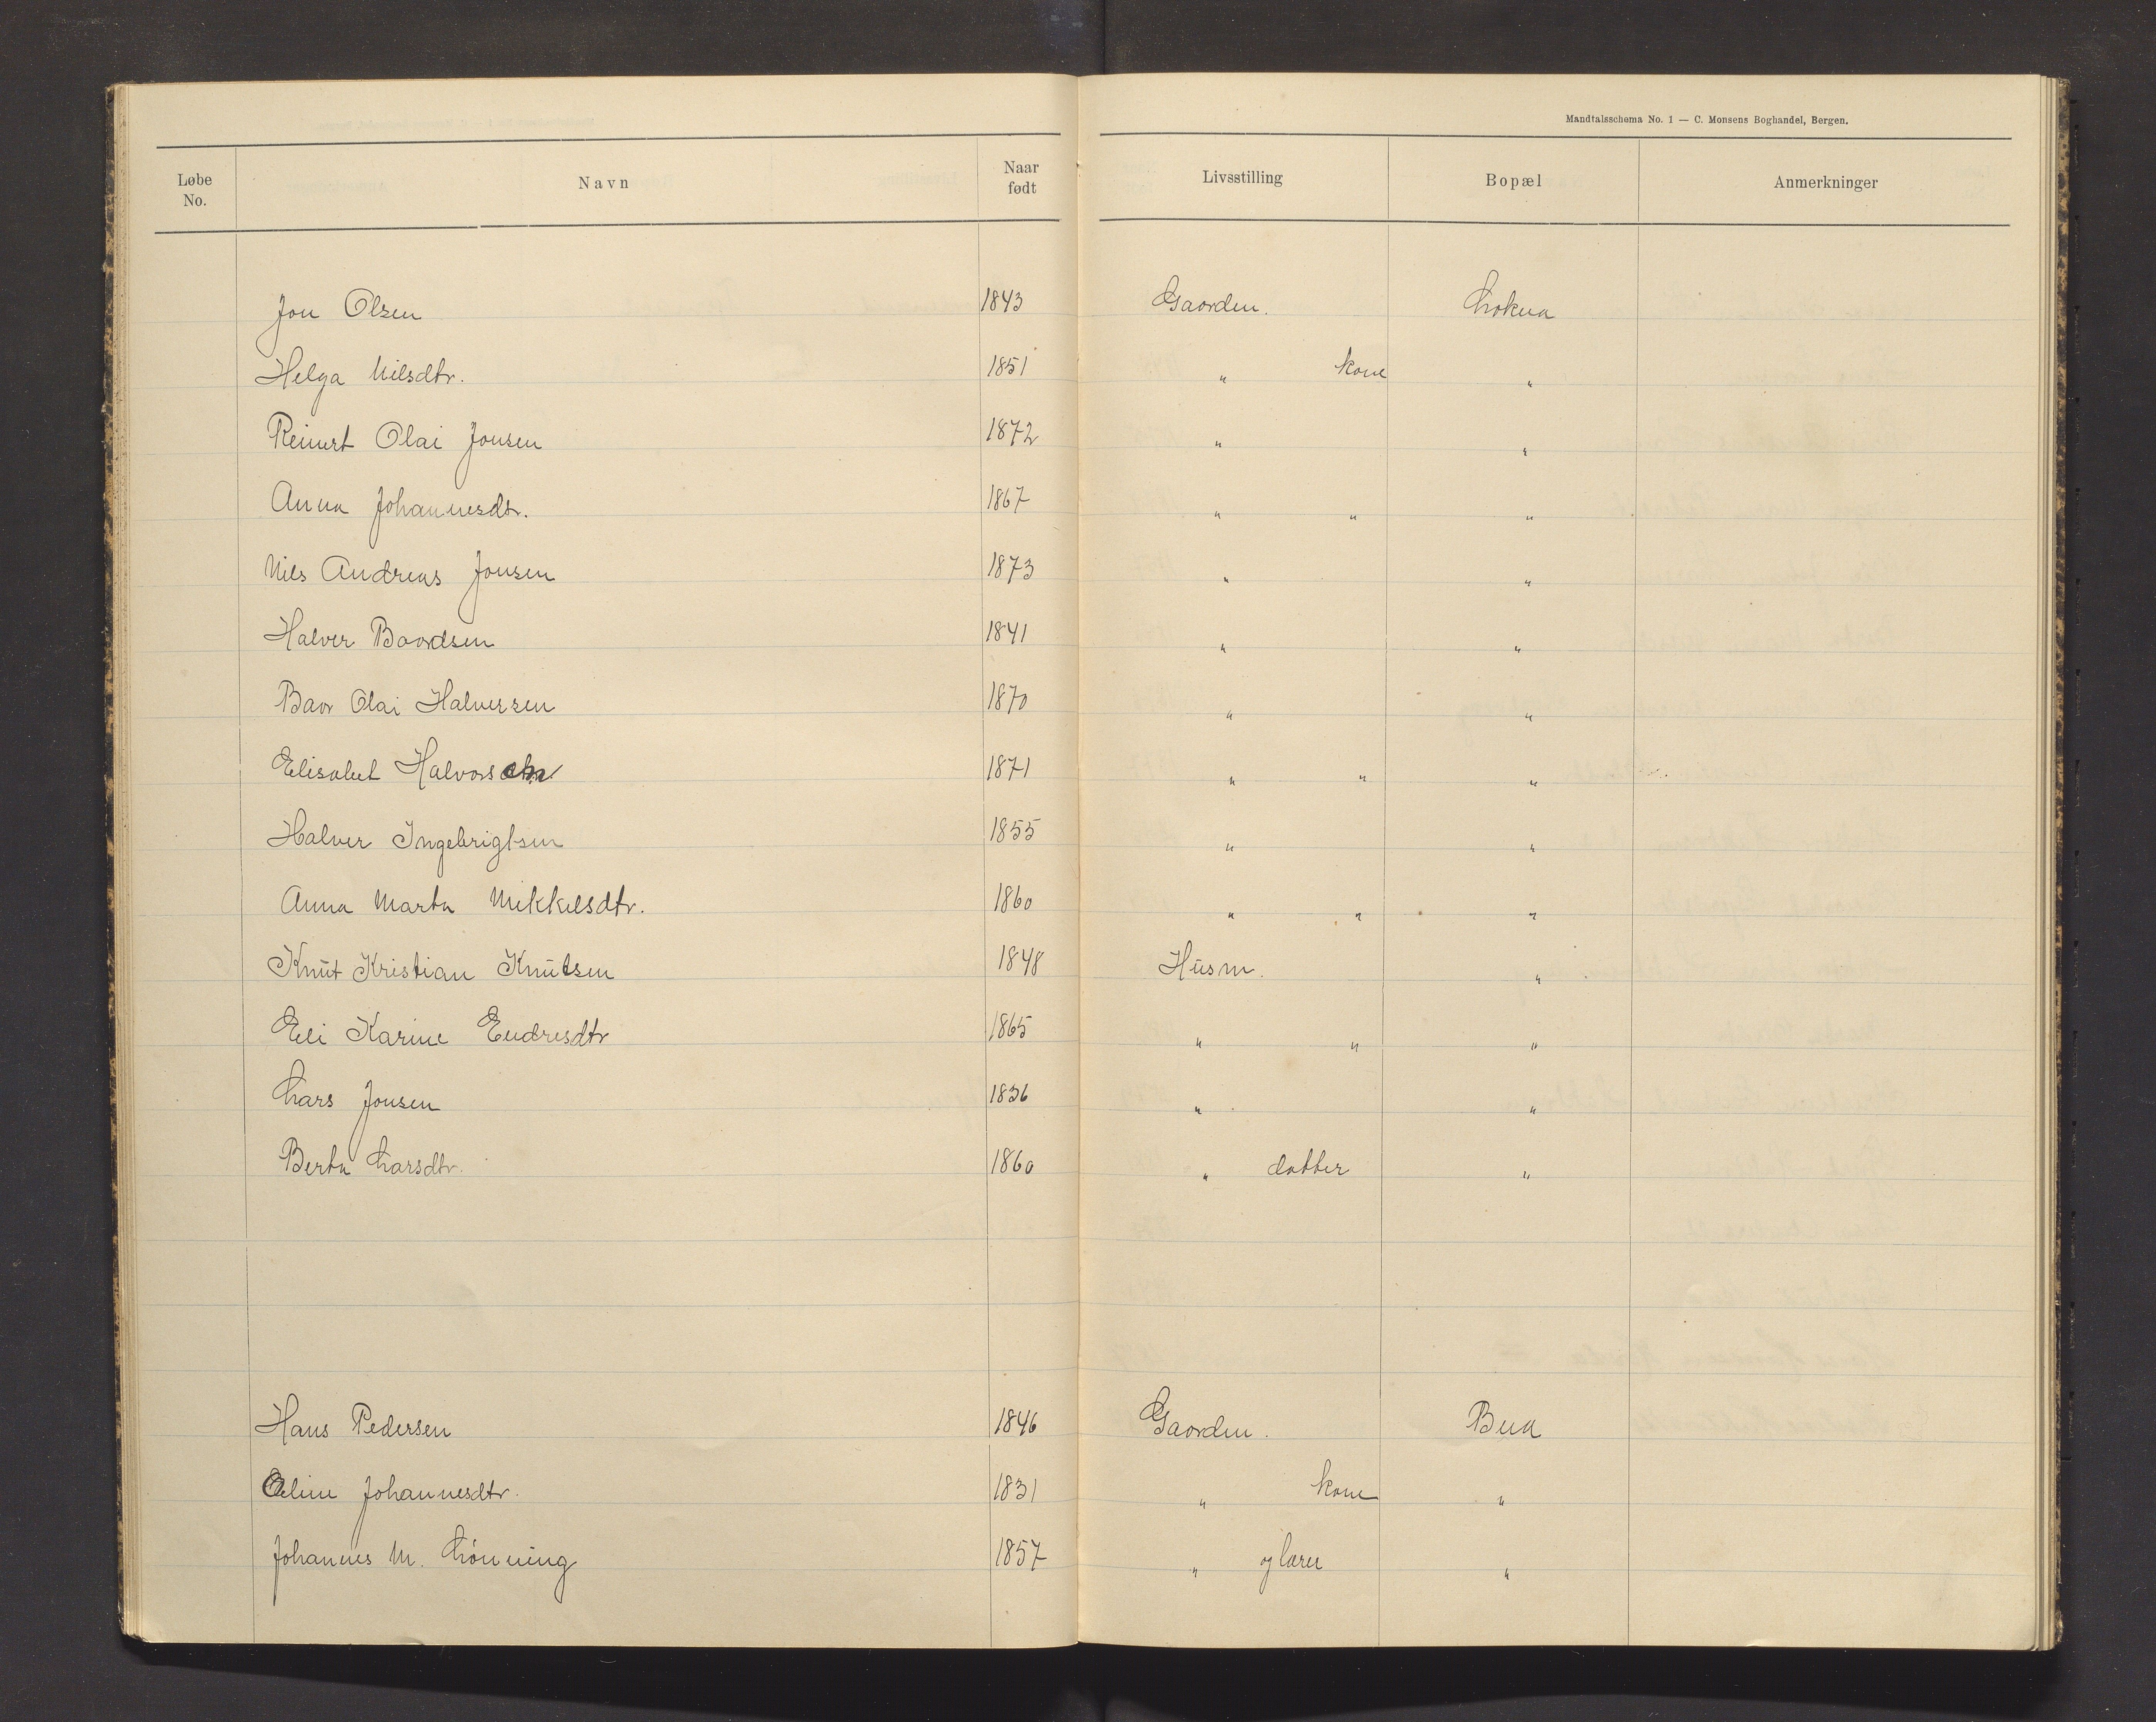 Mandtalsschema No. 1 — C. Monsens Boghandel, Bergen.
Løbe No. Navn Naar født Livsstilling Bopæl Anmerkninger
Jon Olsen 1843 Gaarden. Lokna
Helga Nilsdtr. 1851 " kone "
Reinert Olai Jonsen 1872 " "
Anna Johannesdtr. 1867 " " "
Nils Andreas Jonsen 1873 " "
Halver Baardsen 1841 " "
Baar Olai Halversen 1870 " "
Elisabet 1871 " " "
Halver Ingebrigtsen 1855 " "
Anna Marta Mikkelsdtr. 1860 " " "
Knut Kristian Knutsen 1848 Husm. "
Eli Karine Endresdtr 1865 " " "
Lars Jonsen 1836 " "
Berta Larsdtr. 1860 " datter "
Hans Pedersen 1846 Gaarden. Bua
Oline Johannesdtr. 1831 " kone "
Johannes M. Lönning 1857 " og lærer "